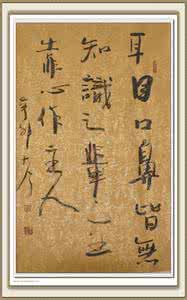 耳目口鼻皆無
知識之輩全
靠心作主人